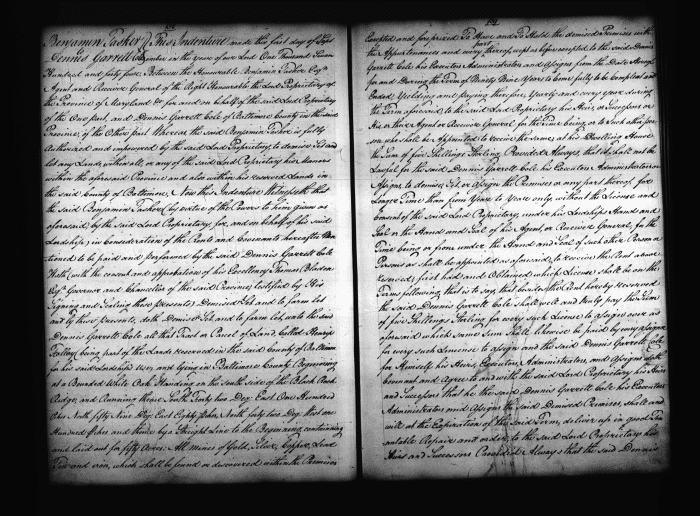 Benjamin Tasker } This Indenture made this first day of Sept
Dennis Garrett Cole } tember in the year of our Lord One Thousand Seven
Hundred and forty five Between the Honourable Benjamin Tasker Esqr
Agent and Receiver General of the Right Honourable the Lord Proprietary of
the Province of Maryland &c for and on behalf of the said Lord Proprietary
of the One part, and Dennis Garrett Cole of Baltimore County in the said
Province, of the Other part Whereas the said Benjamin Tasker is fully
Authorized and impowered by the said Lord Proprietary, to demise Set and
let any Lands, within all, or any of the said Lord Proprietary his Manors
within the aforesaid Province and also within his reserved Lands in
the said County of Baltimore, Now this Indenture Witnesseth that
the said Benjamin Tasker (by virtue of the Power to him given as
aforesaid, by the said Lord Proprietary for, and on behalf of his said
Lordship) in Consideration of the Rents and Covenants hereafter Men
tioned to be paid and performed by the said Dennis Garrett Cole
Hath, with the consent and approbation of his Excellency Thomas Bladen
Esqr Governor and Chancellor of the said Province, testified by His
Signing and Sealing these presents, Demised Set and to farm let
and by these presents, doth Demise Set and to farm let, unto the said
Dennis Garrett Cole all that Tract or Parcel of Land, called
being part of the Lands reserved in the said County of Baltimore
for his said Lordships Use, and lying in Baltimore County Beginning
at a Bounded White Oak Standing on the South side of the Black Rock
Ridge, and Running thence South Sixty two Degs East One Hundred
Ps North fifty Nine Degs East Eighty Ps, North forty two Degs West one
Hundred Ps and thence by a Straight Line to the Beginning, containing
and laid out for fifty Acres: All mines of Gold, Silver, Copper, Lead
Tin and iron, which shall be found or discovered within the Premises
Excepted and foreprized To Have and To Hold the demised Premises with
the Appurtenances and every part thereof, except as before excepted to the said Dennis
Garrett Cole his Executors Administrators and Assigns from the Date hereof
for and During the Term of Ninety Nine Years to Come fully to be Compleat and
Ended, Yielding and paying therefore, Yearly and every year during
the Term aforesaid, to the said Lord Proprietary his Heirs, or Successors or
His or their Agent or Receiver General for the time being, or to Such other per
son who shall be appointed to receive the same, at his Dwelling House
the Sum of five Shillings Sterling Provided Always, that it shall not be
Lawful for the said Dennis Garrett Cole his Executors Administrators or
Assigns to demise, Set, or assign the Premises or any part thereof for
Longer Time than from Year to Year only without the License and
Consent of the said Lord Proprietary under his Lordships Hand and
Seal or the Hand and Seal of his Agent, or Receiver General, for the
Time being or from under the Hand and Seal of such other Person or
Persons as shall be appointed as aforesaid, to receive the Rent above
reserved, first had and Obtained which License shall be on the
Terms following, that is to say, that besides the Rent hereby reserved
the said Dennis Garrett Cole shall well and truly pay the Sum
of five Shillings Sterling for every such License to assign over as
aforesaid which same Sum shall likewise be paid by every assignee
for every such License to assign and the said Dennis Garrett Cole
for Himself his Heirs, Executors, Administrators, and Assigns doth
Covenant and Agree to and with the said Lord Proprietary his Heirs
and Successors that he the said Dennis Garrett Cole his Executors
Administrators and Assigns the said Demised Premises, shall and
will at the Expiration of the said Term, deliver up in good Ten
antable Repair and order, to the said Lord Proprietary his
Heirs and Successors Provided Always that the said Dennis